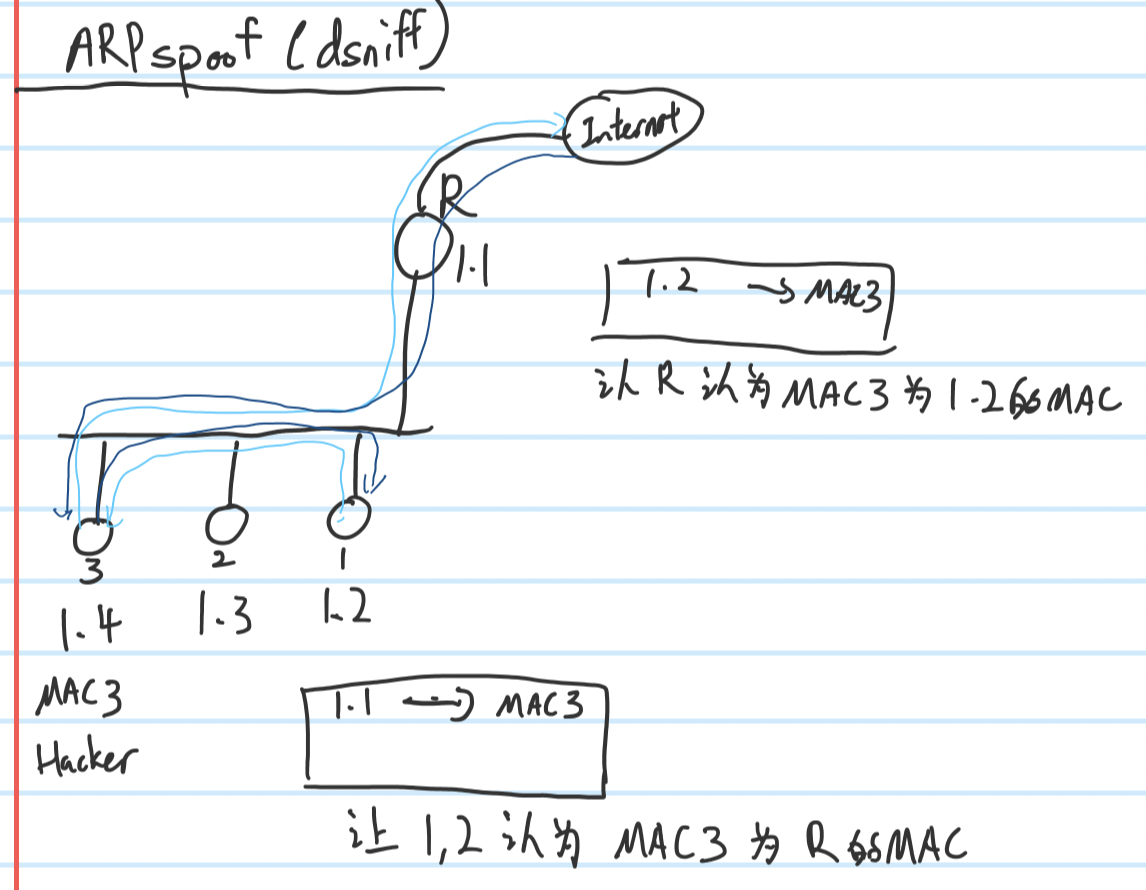 ARPspoof (dsniff)
Internet
R
1.1
1.2 → MAC3
让 R 认为 MAC3 为 1.2的MAC
3 2 1
1.4 1.3 1.2
MAC3
Hacker
1.1 → MAC3
让 1,2 认为 MAC3 为 R的MAC